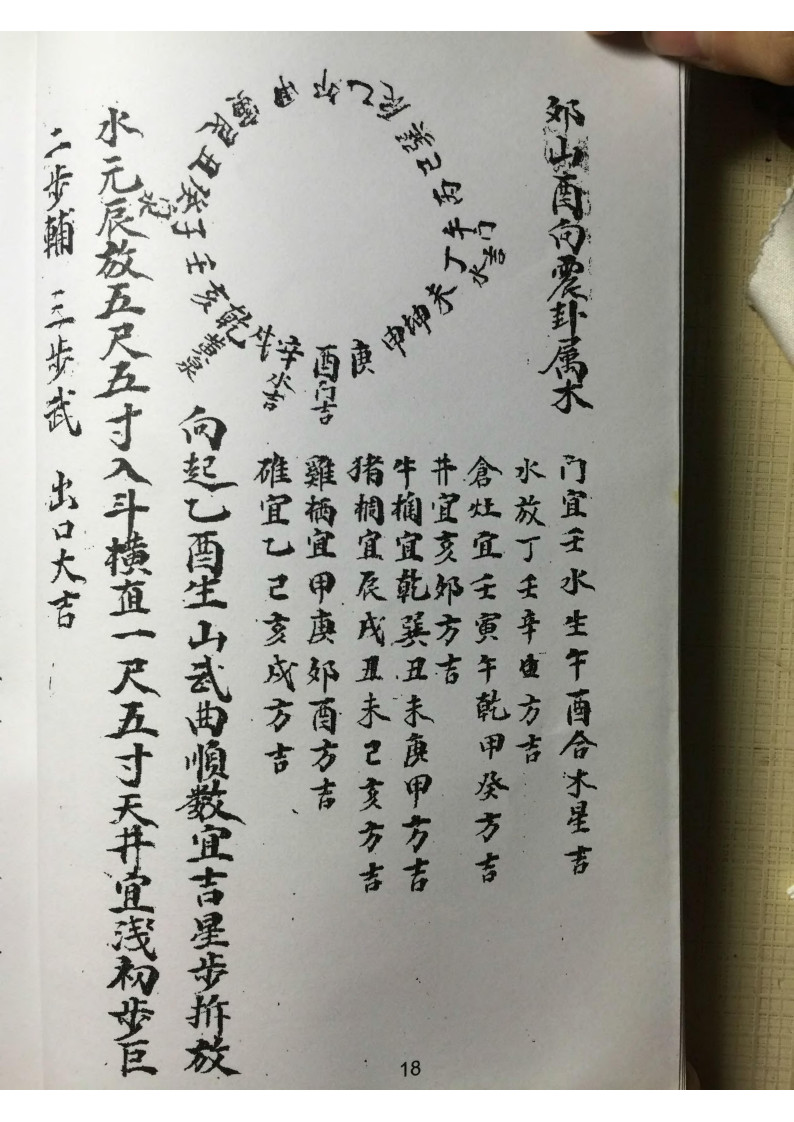 郊山酉向震卦属木
门宜壬水生午酉合木星吉
水放丁壬辛方吉
倉灶宜壬寅午乾甲癸方吉
井宜亥郊方吉
牛桷宜乾巽丑未庚甲方吉
猪椆宜辰戌丑未己亥方吉
雞栖宜甲庚郊酉方吉
碓宜乙己亥戍方吉
乙辰
己
丙
午 门吉
丁 水
未
坤
申
庚
酉 门吉
辛 水吉
乾 黄泉
亥
壬
子
丑
艮
向起乙酉生山武曲順數宜吉星步折放
水元辰放五尺五寸入斗横直一尺五寸天井宜浅初步巨
二步輔 三步武 出口大吉
18